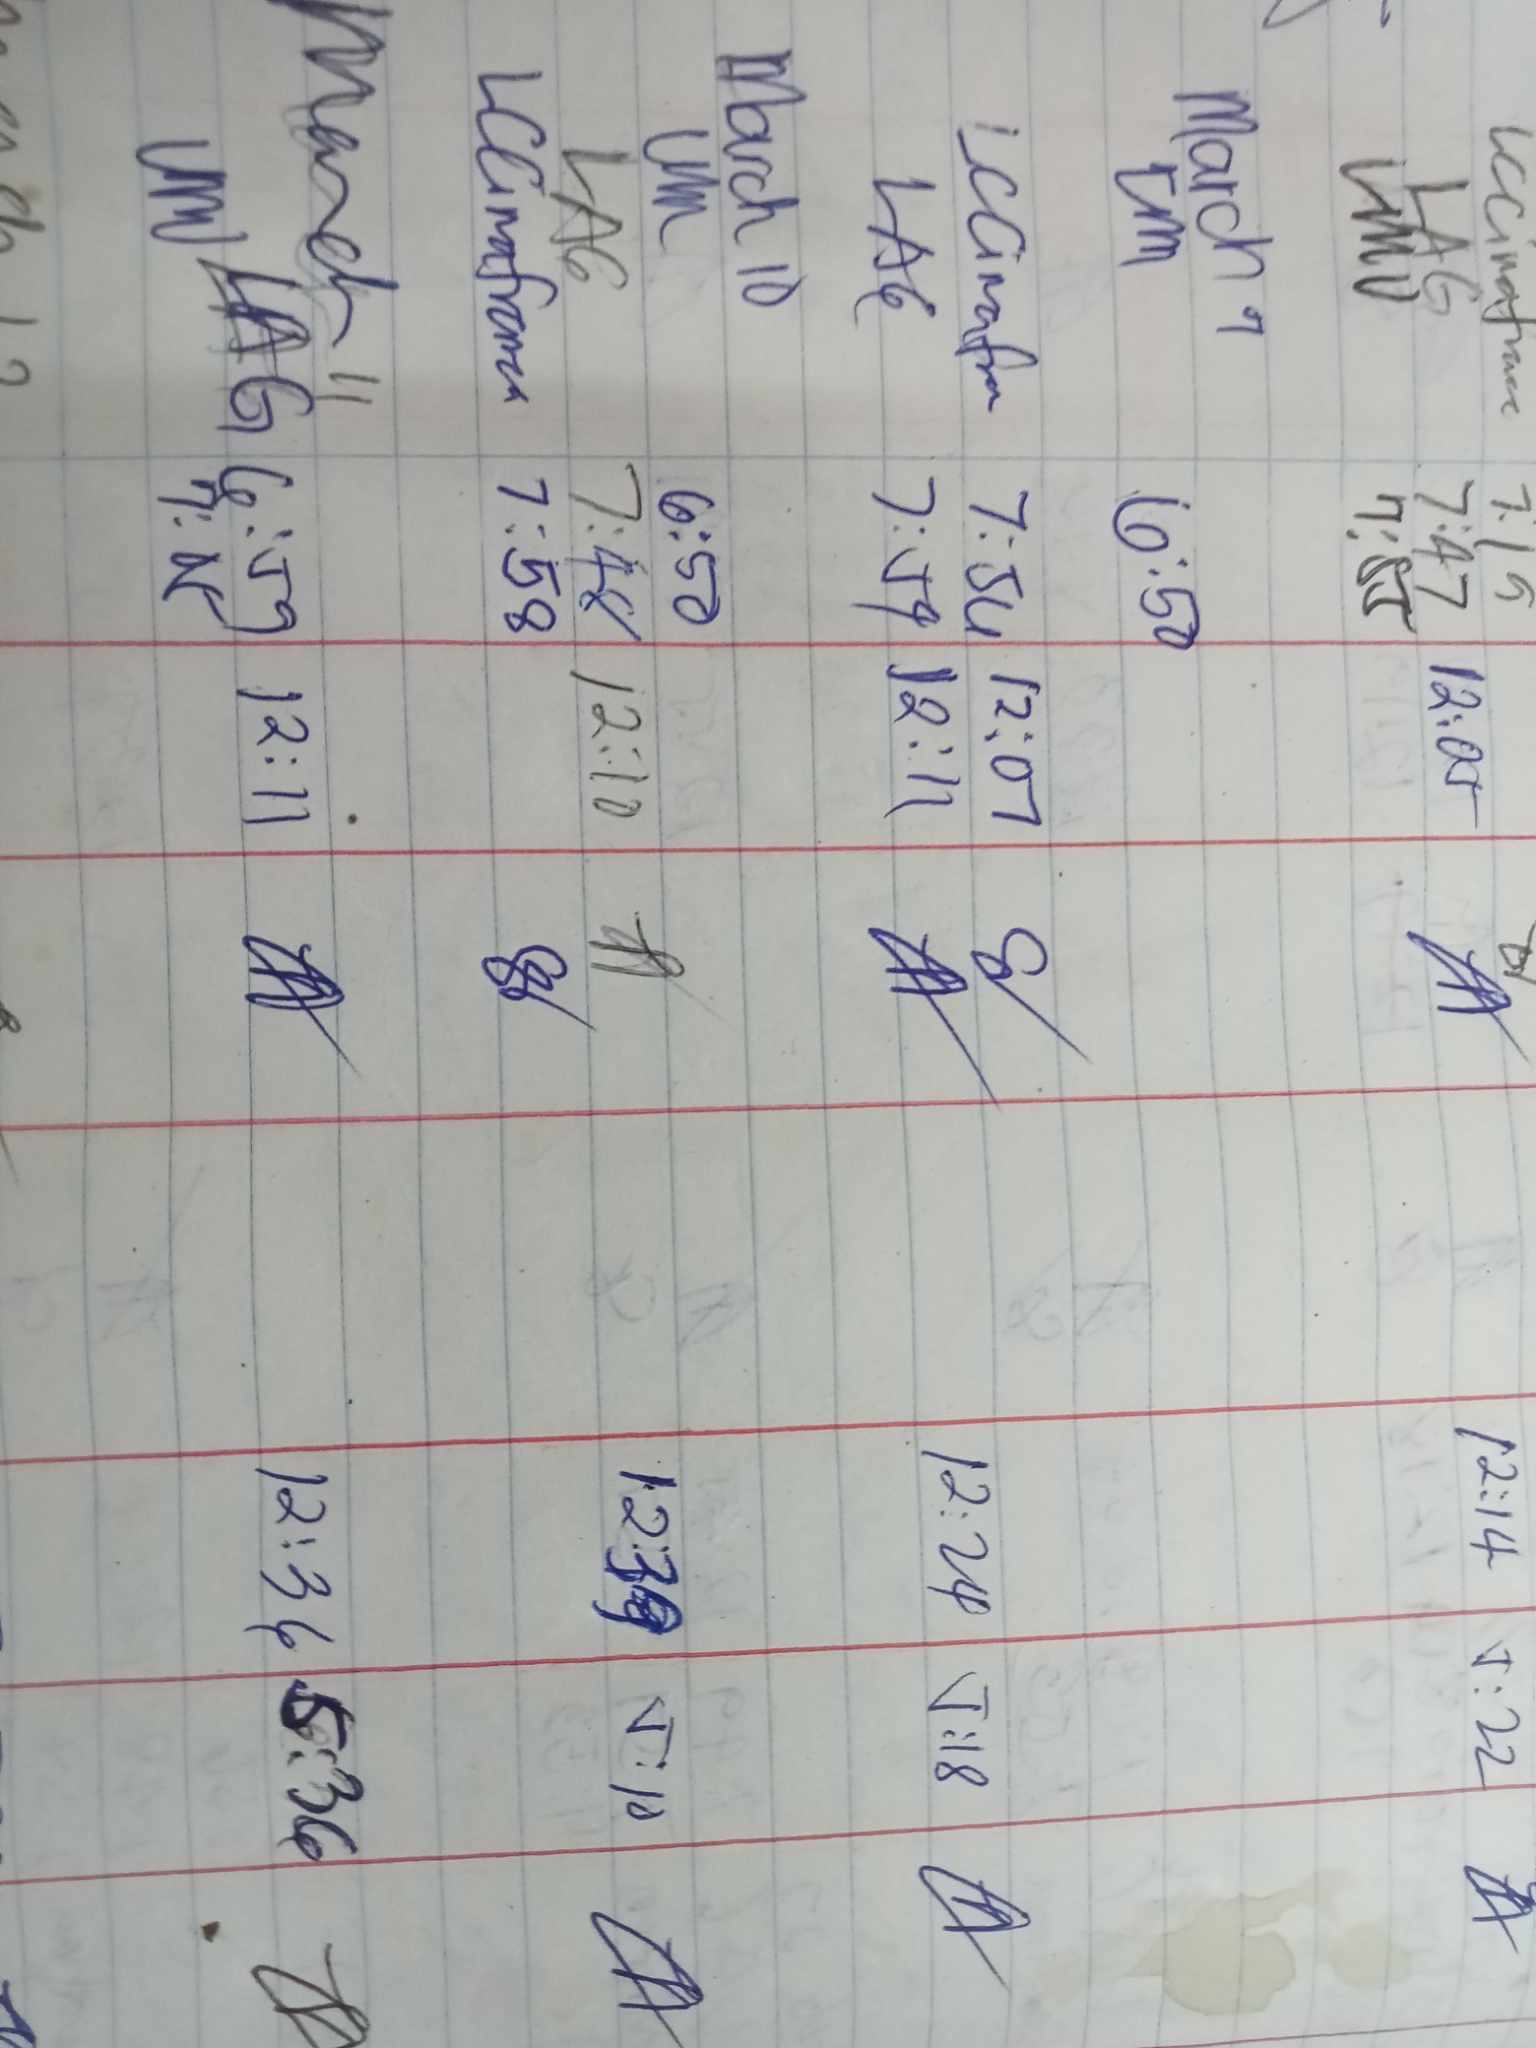 LCCimafranca 7:15
LAG 7:47 12:05 12:14 5:22
LMV
March 9
LMM 6:50
LCCimafra 7:54 12:07
LAG 7:59 12:11 12:24 5:18
March 10
LMM 6:50
LAG 7:48 12:10 5:10
LCCimafranca 7:58
March 11
LAG 6:59 12:11 12:36 5:36
LMV